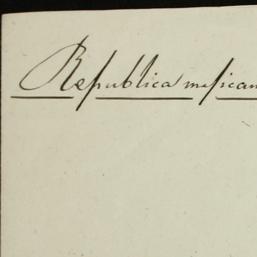 Republica mejican